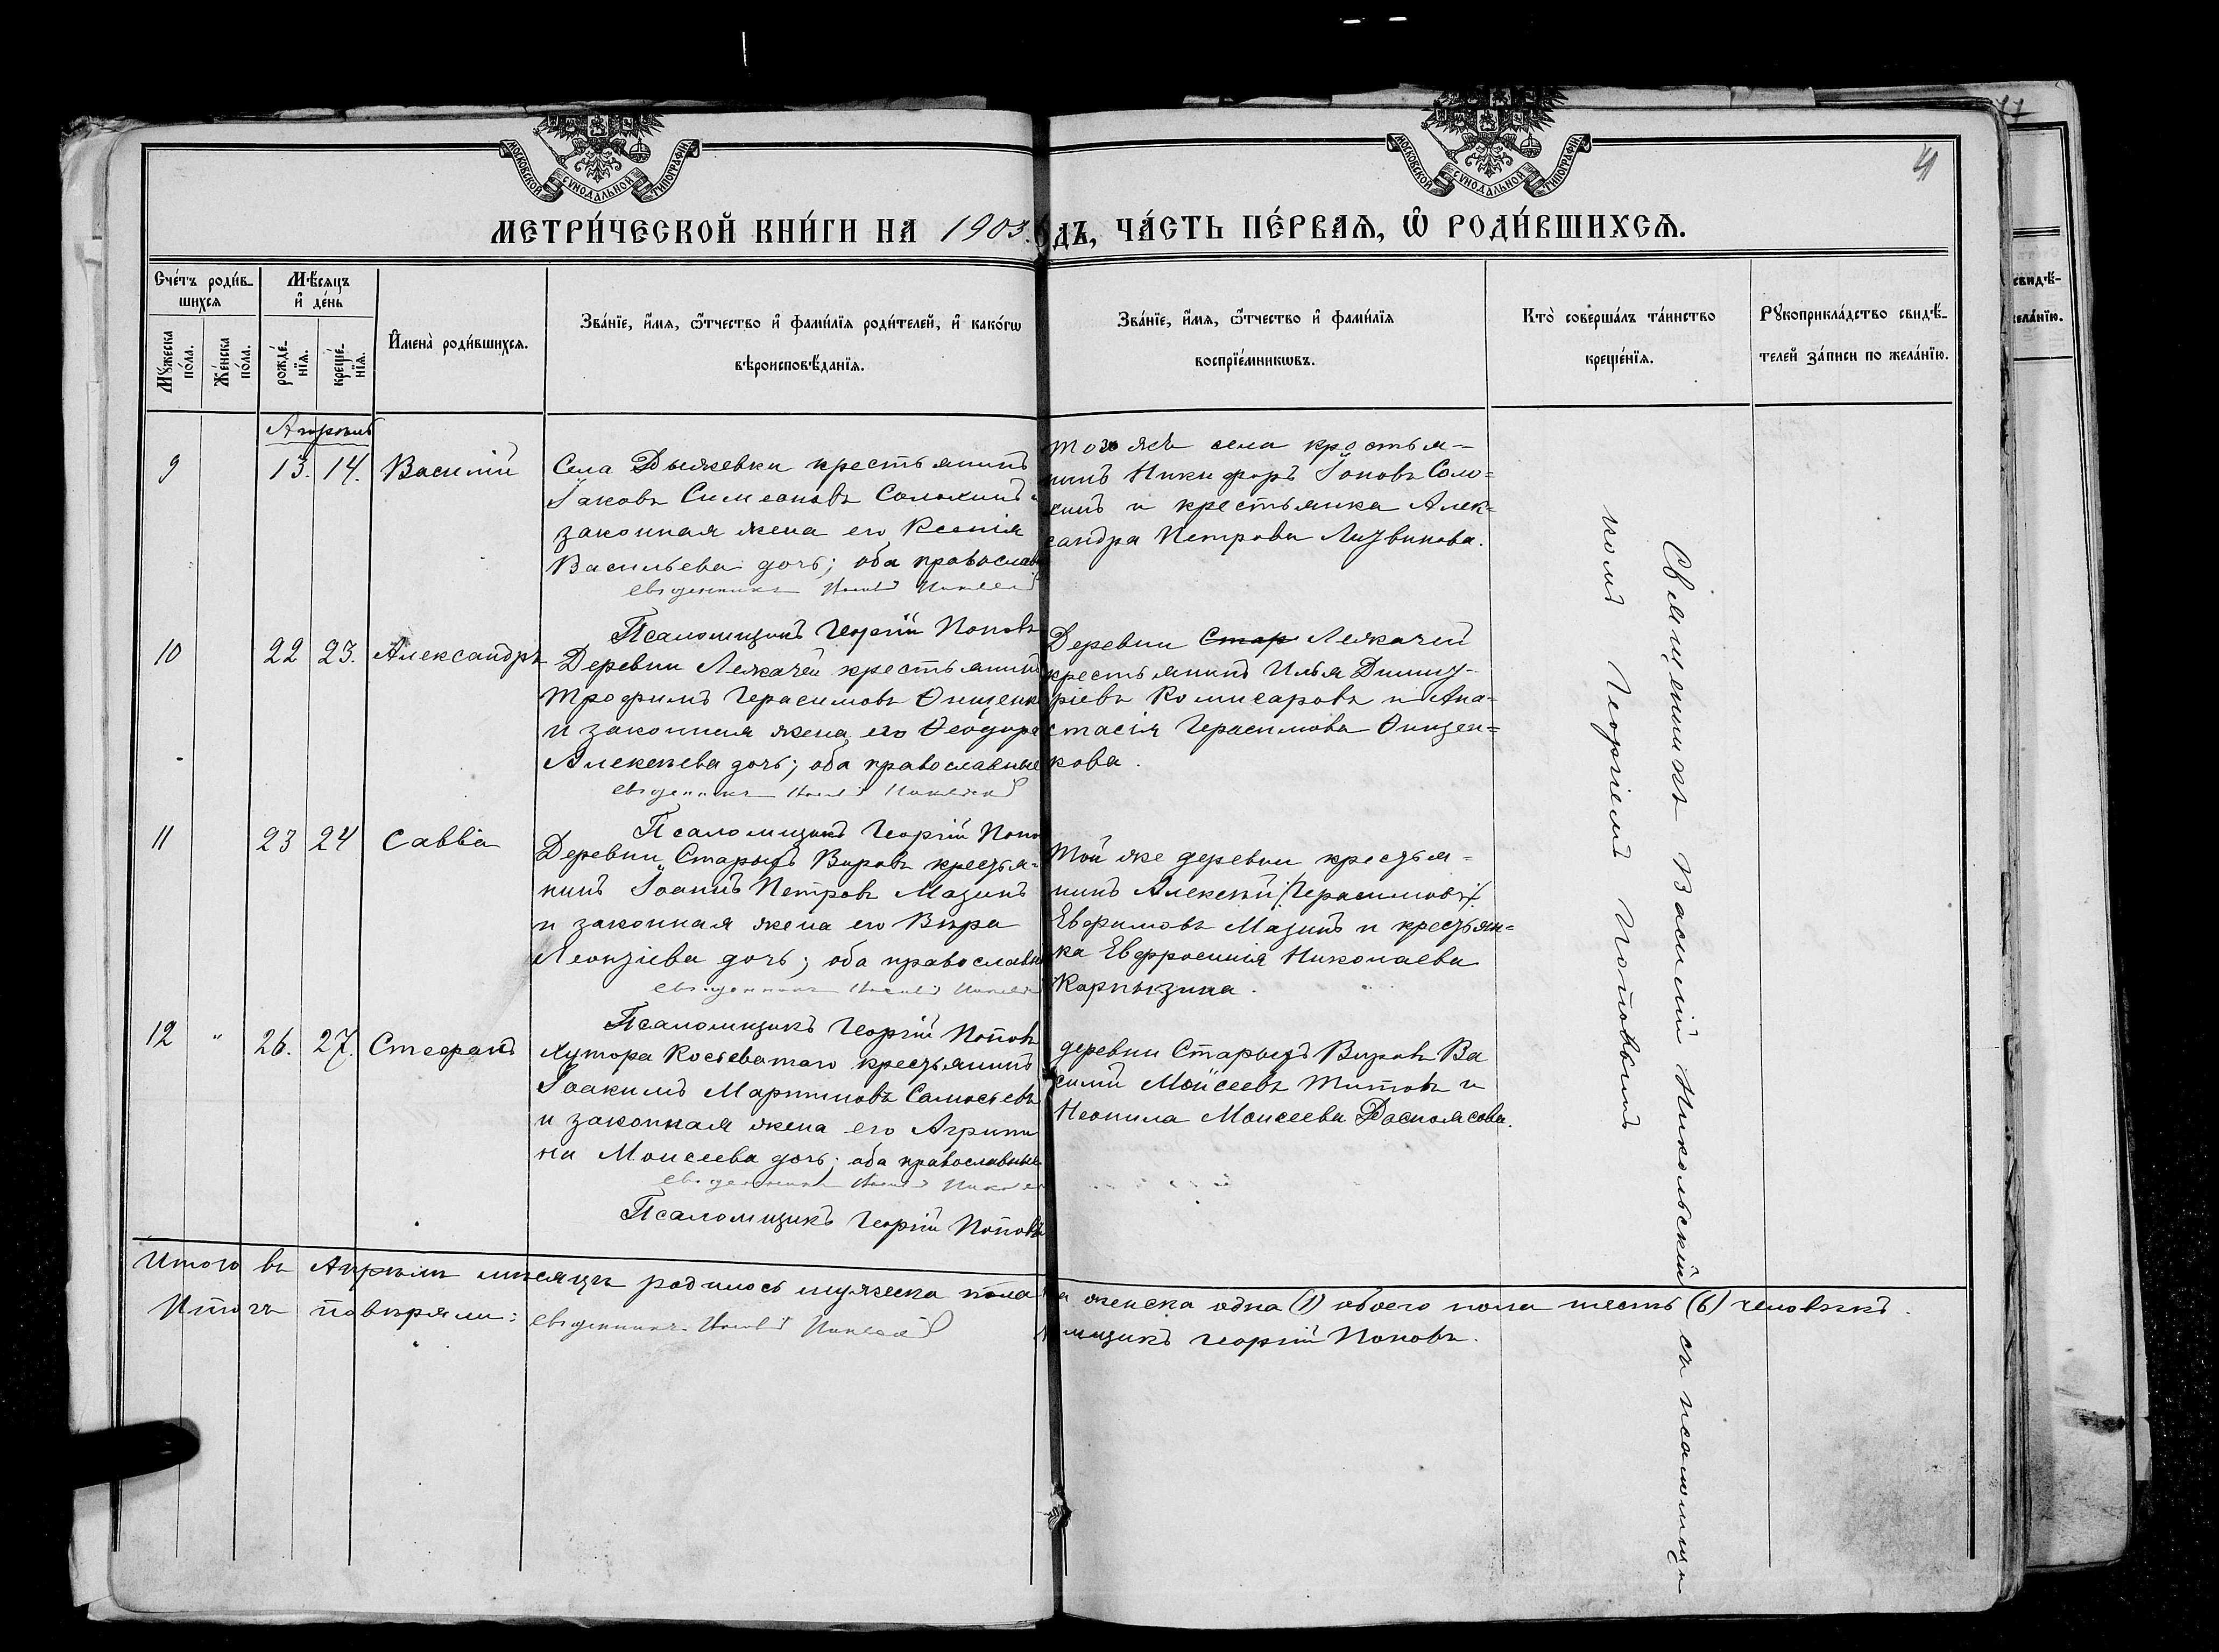 МОСКОВСКОЙ СУНОДАЛЬНОЙ ТИПОГРАФІИ
МОСКОВСКОЙ СУНОДАЛЬНОЙ ТИПОГРАФІИ
41
МЕТРИ́ЧЕСКОЙ КНИ́ГИ НА 1903. ДЪ, ЧА́СТЬ ПЕ́РВАѦ, Ѡ҆ РОДИ́ВШИХСѦ.
Сче́тъ роди́в-
шихсѧ
Мꙋ́жеска по́ла.
Же́нска по́ла.
Мѣ́сѧцъ
и҆ де́нь
рожде́-нїѧ.
креще́-нїѧ.
И҆мена̀ роди́вшихсѧ.
Зва́нїе, и҆́мѧ, ѻ҆́тчество и҆ фами́лїѧ роди́телей, и҆ како́гѡ
вѣроисповѣ́данїѧ.
Зва́нїе, и҆́мѧ, ѻ҆́тчество и҆ фами́лїѧ
воспрїе́мникѡвъ.
Кто̀ соверша́лъ та́инство
креще́нїѧ.
Рꙋкоприкла́дство свидѣ́-
телей за́писи по жела́нїю.
свидѣ́-
жела́нїю.
Апрѣль
9 13. 14. Василій
Села Дыжевки крестьянинъ
Іаковъ Симеоновъ Солохинъ и
законная жена его Ксенія
Васильева дочь; оба православ
Священникъ
Псаломщикъ Георгій Поповъ
того жъ села крестья-
нинъ Никифоръ Іоновъ Соло=
хинъ и крестьянка Алек-
сандра Петрова Литвинова.
10 22 23. Александръ
Деревни Лежачей крестьянинъ
Трофимъ Герасимовъ Онищенк
и законная жена его Ѳеодора
Алексѣева дочь; оба православные
Священникъ
Псаломщикъ Георгій Попо
Деревни Стар Лежачей
крестьянинъ Илья Димит-
ріевъ Комисаровъ и Ана-
стасія Герасимова Онищен=
кова.
11 23 24 Савва
Деревни Старыхъ Вировъ крестья-
нинъ Іоаннъ Петровъ Мазинъ
и законная жена его Вѣра
Леонтіева дочь; оба православн
Священникъ
Псаломщикъ Георгій Поповъ
Той же деревни крестья=
нинъ Алексѣй /Герасимовъ/
Евфимовъ Мазинъ и крестьян=
ка Евфросинія Николаева
Карпызина.
12 " 26. 27. Стефанъ
Хутора Косьеватаго крестьянинъ
Іоакимъ Мартиновъ Самосьевъ
и законная жена его Агрипи
на Моисеева дочь; оба православные
Священникъ
Псаломщикъ Георгій Поповъ
деревни Старыхъ Вировъ Ва
силій Моѵсеевъ Титовъ и
Неонила Моисеева Распоясова.
Священникъ Василій Никольскій съ псаломщи
комъ Георгіемъ Поповымъ
Итого въ Апрѣлѣ мѣсяцѣ родилось мужеска пола а женска одна (1) обоего пола шесть (6) человѣкъ.
Итогъ повѣряли: Священникъ мщикъ Георгій Поповъ.